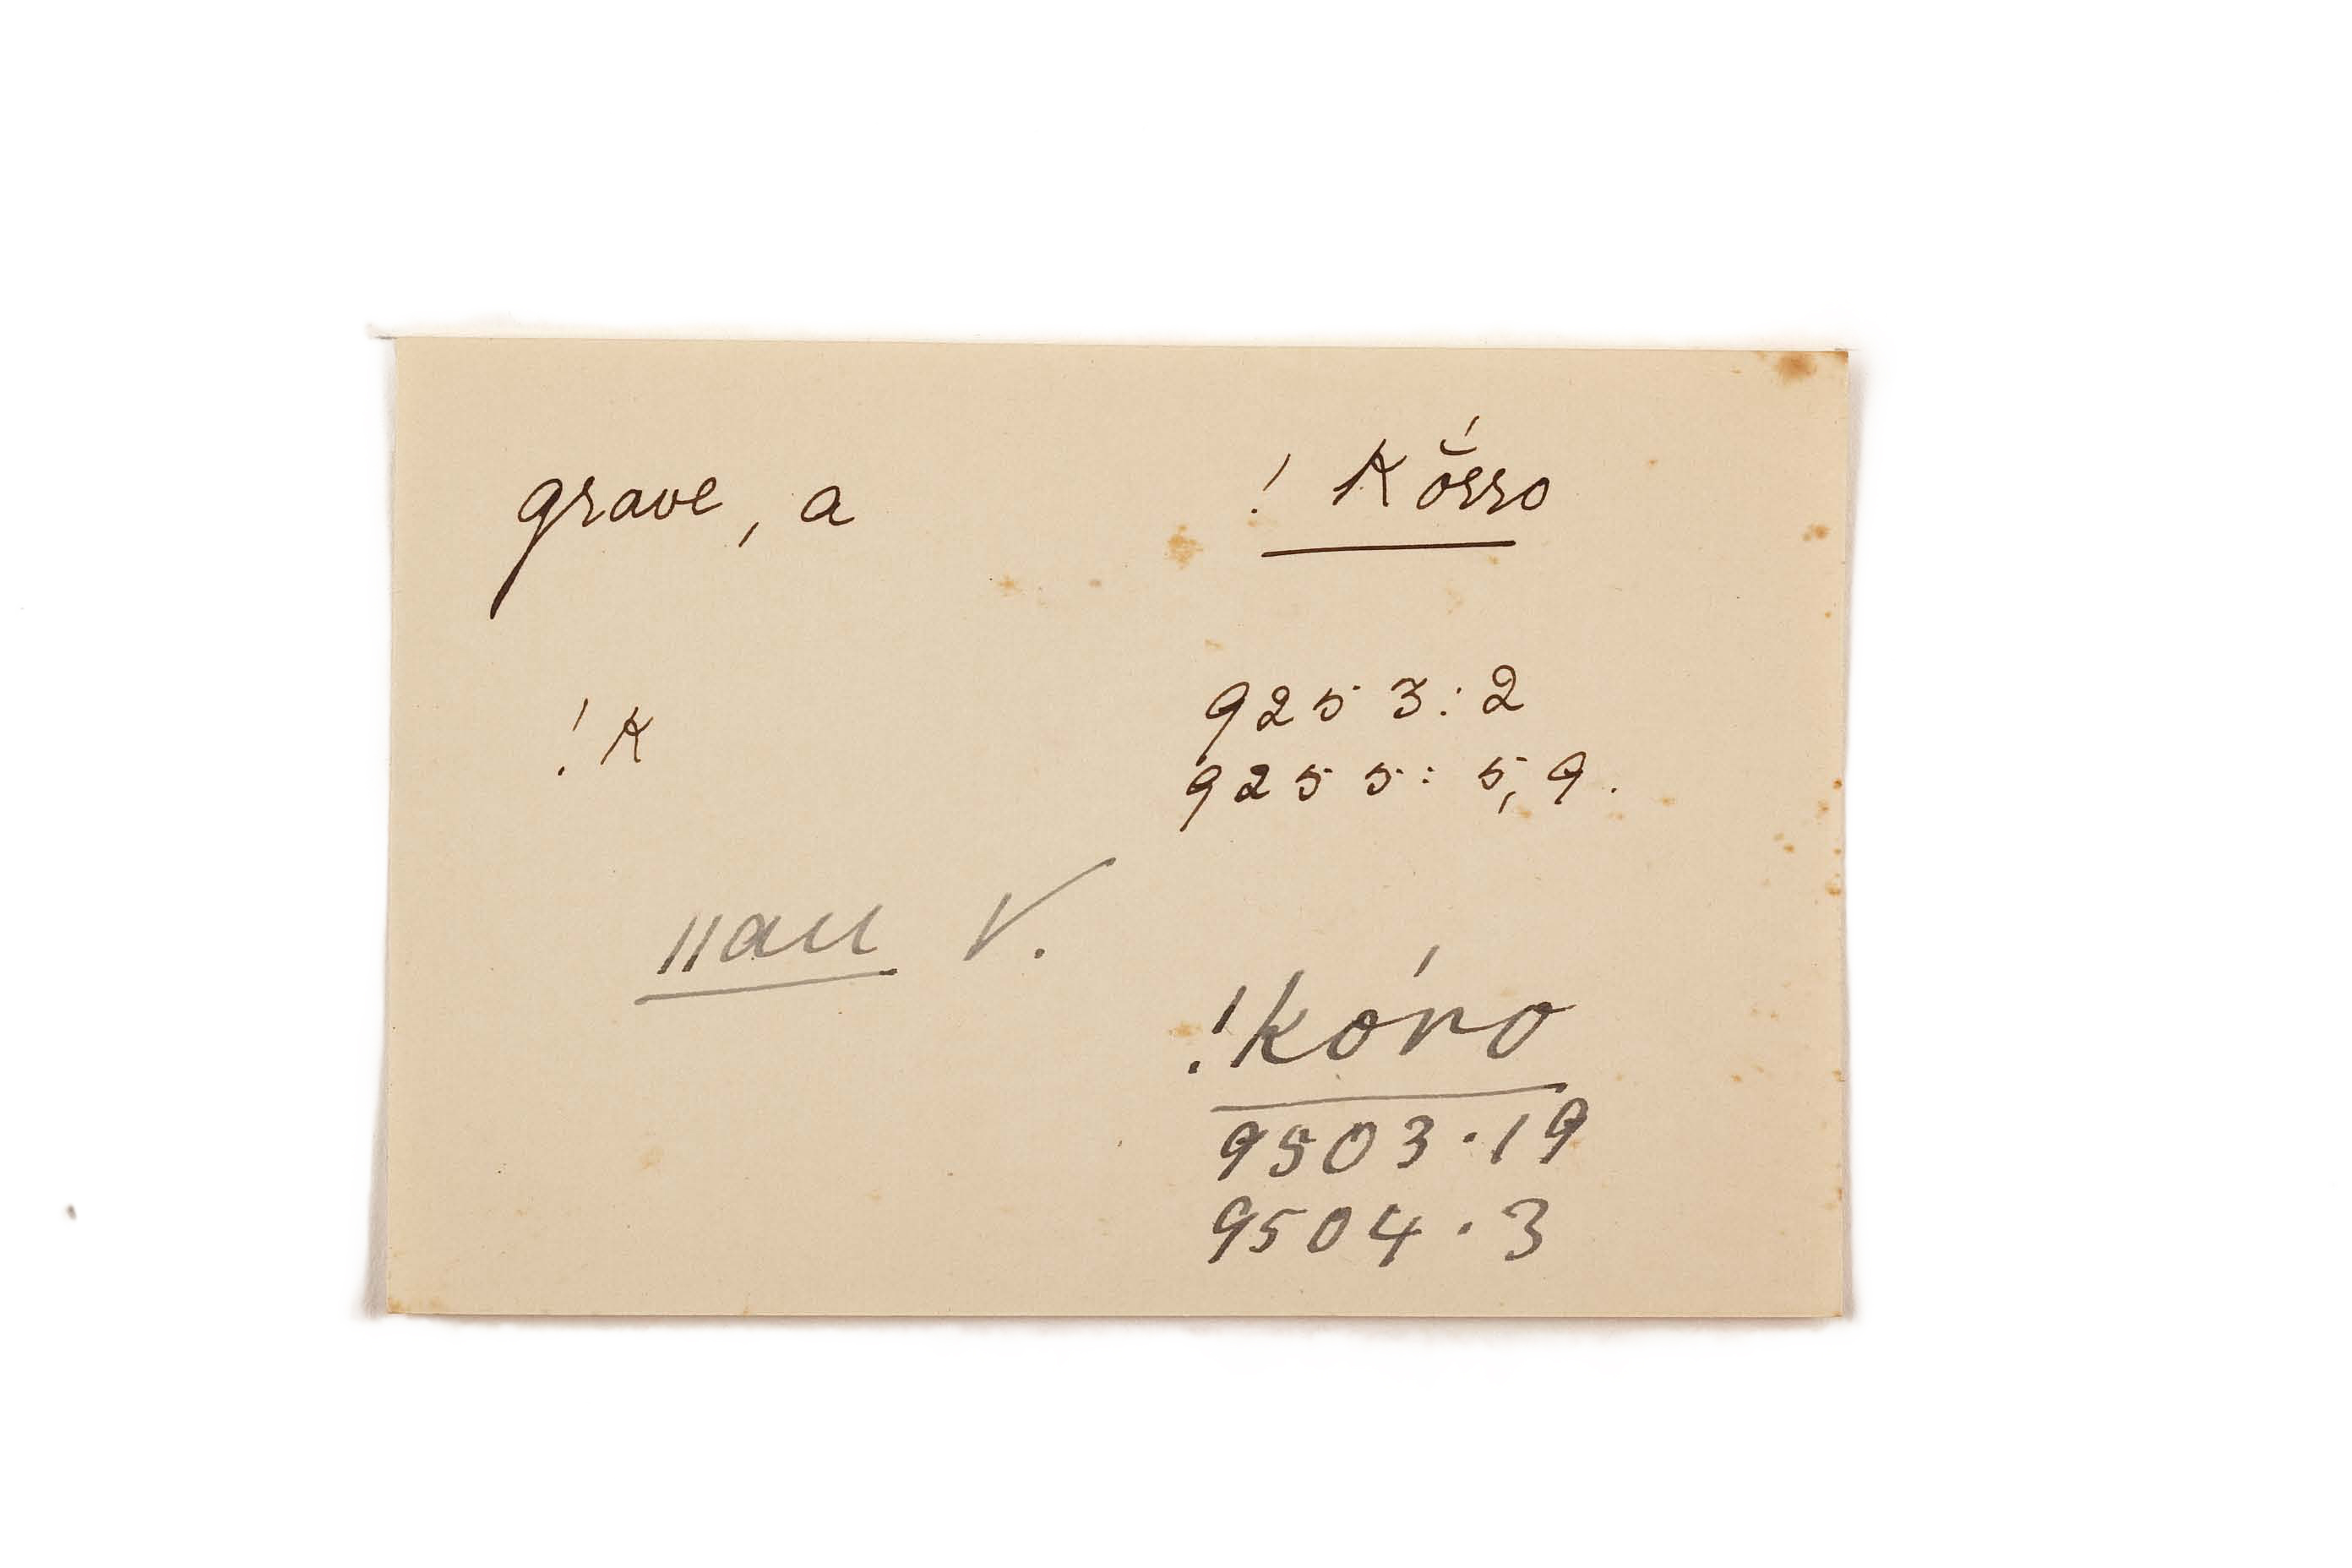 grave, a
! Kŏ́rro
! K
9253:2
9255:5,9.
||au V.
!kóro
9503.19
9504.3